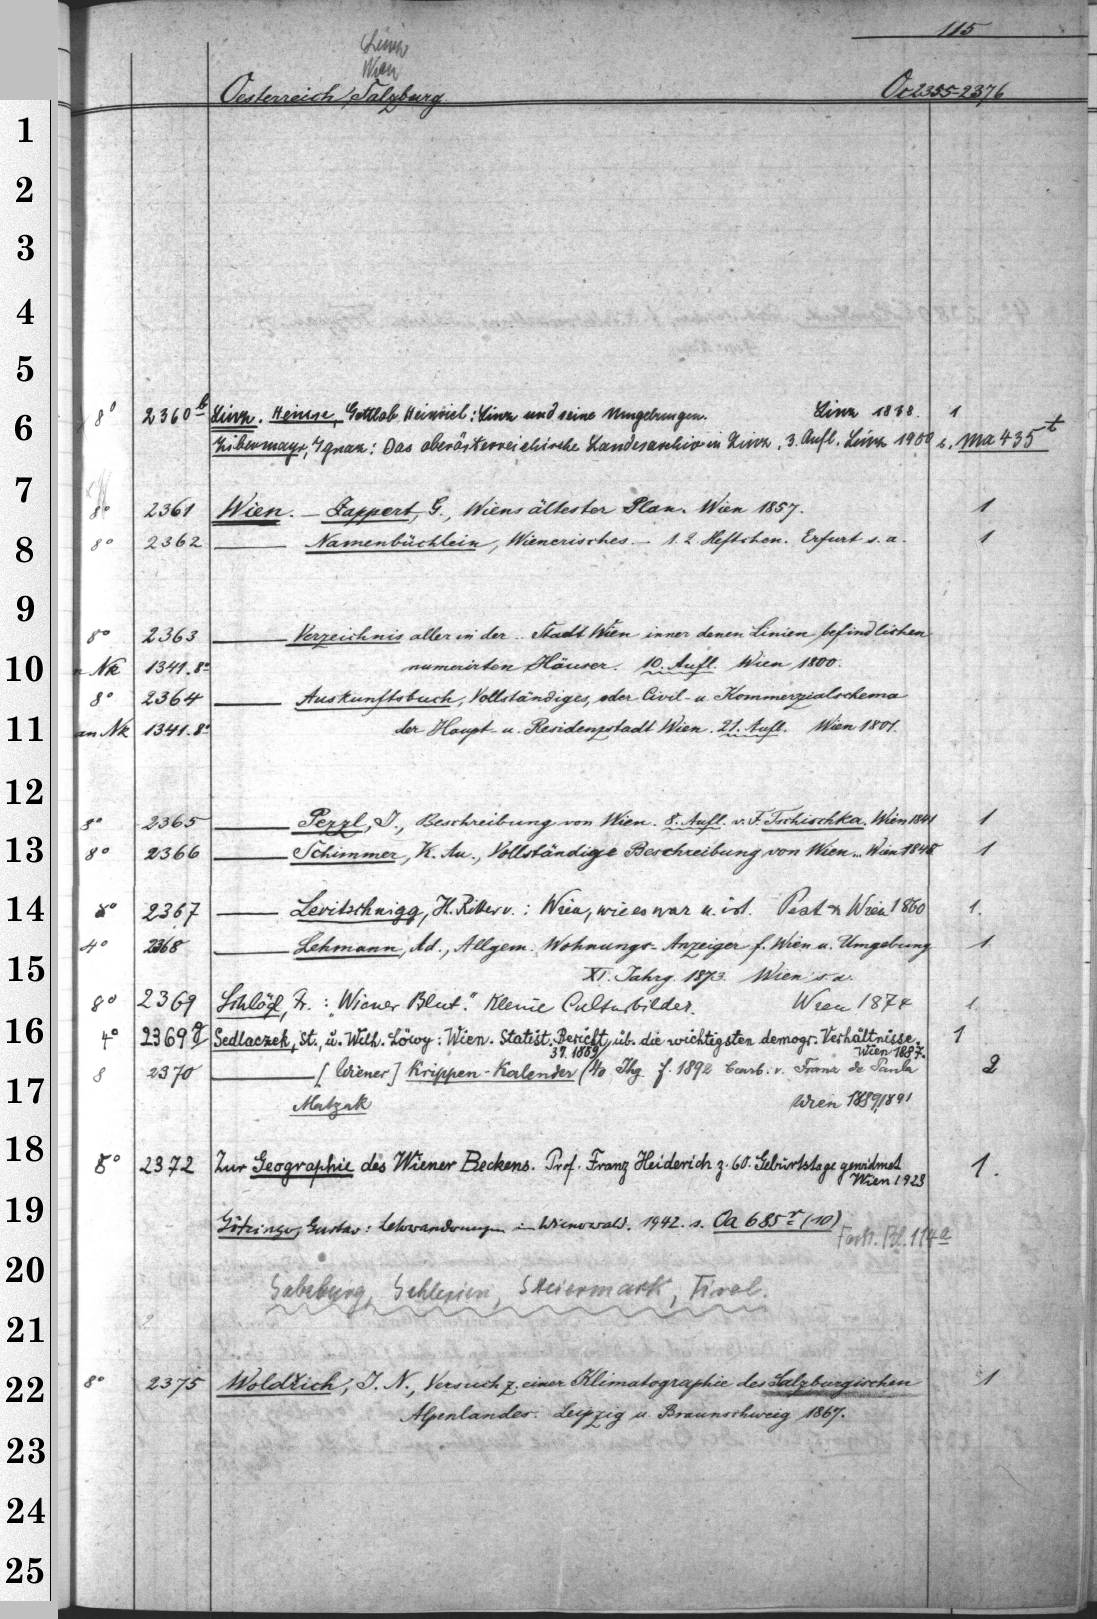 115
Linz
Wien
Oesterreich, Salzburg. Oc 2355-2376
1
2
3
4
5
6
8° 2360 b Linz. Heinse, Gottlob Heinrich: Linz und seine Umgebungen. Linz 1838. 1
Zibermayr, Ignaz: Das oberösterreichische Landesarchiv in Linz. 3. Aufl. Linz 1950 s. Ma 435 t
7
8° 2361 Wien. — Zappert, G., Wiens ältester Plan. Wien 1857. 1
8
8° 2362 — Namenbüchlein, Wienerisches. — 1. 2. Heftchen. Erfurt s. a. 1
9
8° 2363 — Verzeichnis aller in der .. Stadt Wien inner denen Linien befindlichen
10
an Nk 1341. 8° numerirten Häuser. 10. Aufl. Wien 1800.
8° 2364 — Auskunftsbuch, Vollständiges, oder Civil- u Kommerzialschema
11
an Nk 1341. 8° der Haupt- u. Residenzstadt Wien. 21. Aufl. Wien 1801.
12
8° 2365 — Pezzl, J., Beschreibung von Wien. 8. Aufl. v. F. Tschischka. Wien 1841 1
13
8° 2366 — Schimmer, K. Au., Vollständige Beschreibung von Wien.. Wien 1848 1
14
8° 2367 — Levitschnigg, H. Ritter v.: Wien, wie es war u. ist. Pest & Wien 1860 1.
4° 2368 — Lehmann, Ad., Allgem. Wohnungs-Anzeiger f. Wien u. Umgebung 1
15
XI. Jahrg. 1873. Wien s. a.
8° 2369 Schlögl, Fr.: "Wiener Blut." Kleine Culturbilder. Wien 1874 1.
16
4° 2369 g Sedlaczek, St., u. Wilh. Löwy: Wien. Statist. Bericht üb. die wichtigsten demogr. Verhältnisse. 1
Wien 1887.
37. 1889/
8 2370 — [Wiener] Krippen-Kalender (40 Jhg f. 1892 bearb. v. Franz de Paula 2
17
Matzak Wien 1889/1891
18
8° 2372 Zur Geographie des Wiener Beckens. Prof. Franz Heiderich z. 60. Geburtstage gewidmet 1.
Wien 1923
19
Götzinger, Gustav: Lehrwanderungen im Wienerwald. 1942. s. Oa 685 r (10)
Forts. Bl. 114 a
20
Salzburg, Schlesien, Steiermark, Tirol.
21
22
8° 2375 Woldřich, J. N., Versuch z. einer Klimatographie des Salzburgischen 1
Alpenlandes. Leipzig u Braunschweig 1867.
23
24
25